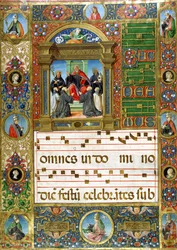 omnes in do mi no
diē festū celebrātes sub